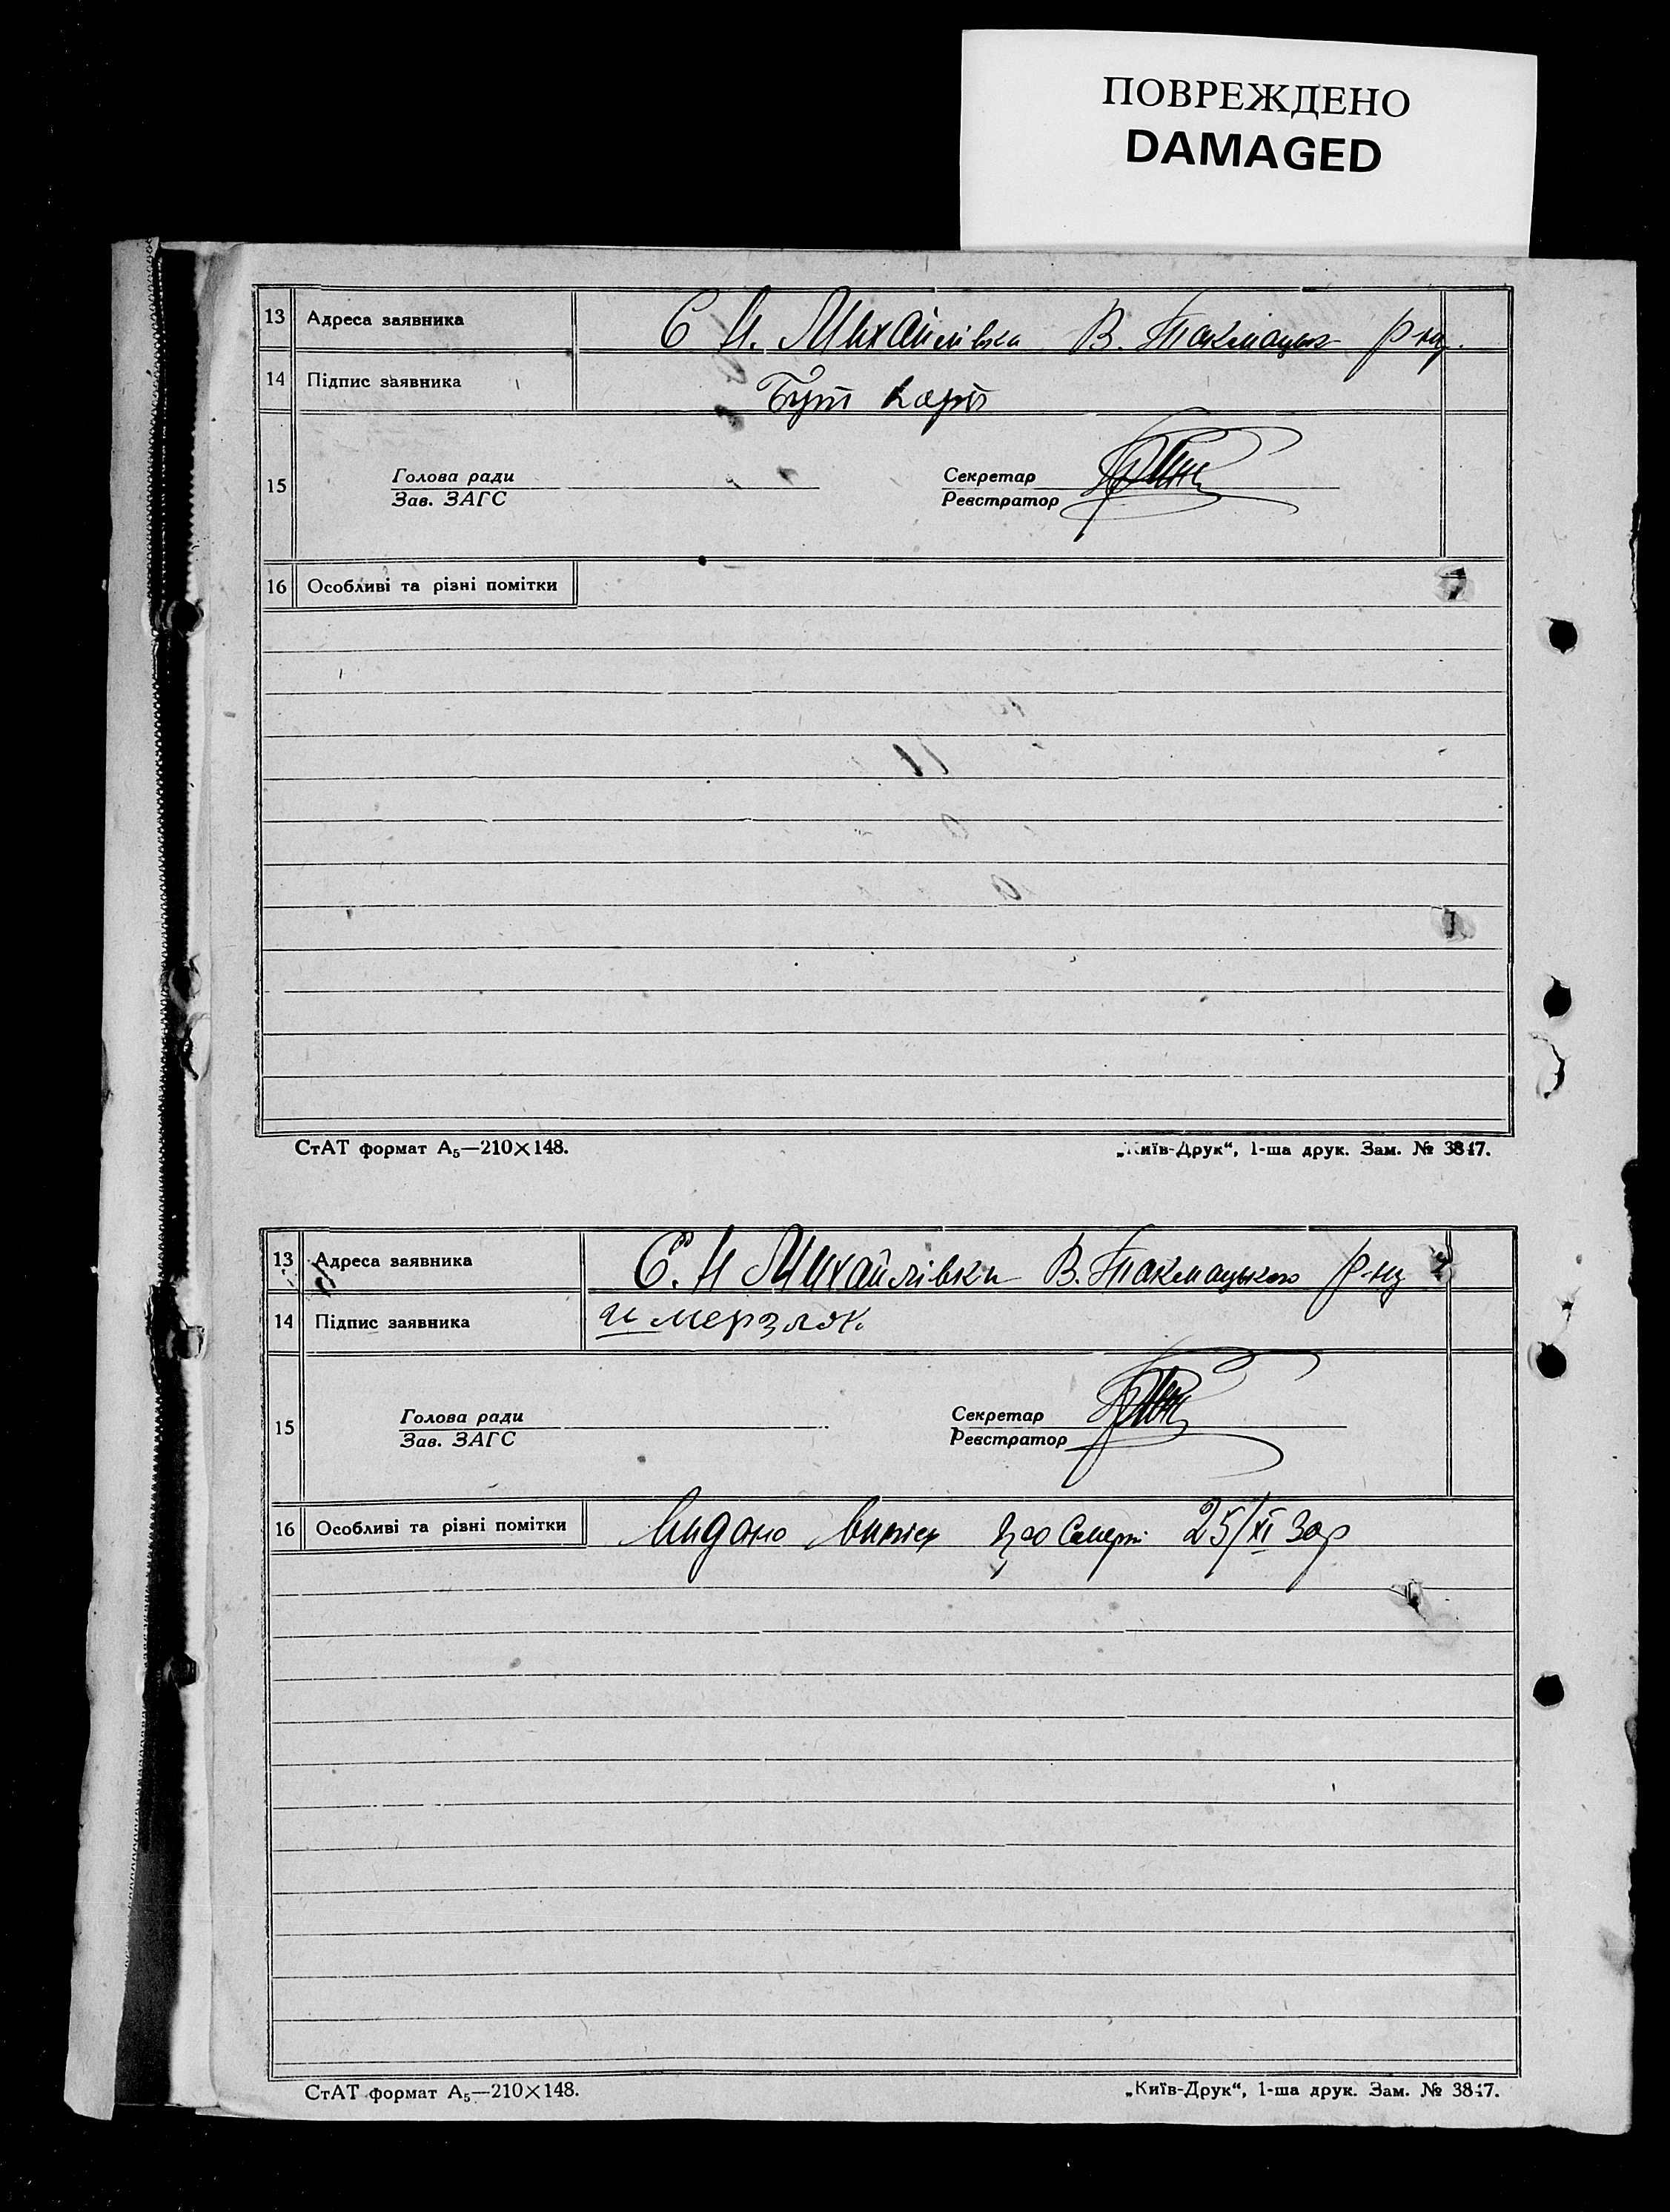 ПОВРЕЖДЕНО
DAMAGED
13 Адреса заявника С Н. Михайлівка В. Токмацьк р-ну.
14 Підпис заявника Бут Карп
15 Голова ради Секретар
Зав. ЗАГС Реєстратор
16 Особливі та різні помітки
СтАТ формат А₅—210×148. „Київ-Друк“, 1-ша друк. Зам. № 3847.
13 Адреса заявника С. Н Михайлівка В. Токмацького р-ну
14 Підпис заявника и мерзлок
15 Голова ради Секретар
Зав. ЗАГС Реєстратор
16 Особливі та різні помітки Видано випис про смерт 25/XI 30р
СтАТ формат А₅—210×148. „Київ-Друк“, 1-ша друк. Зам. № 3847.